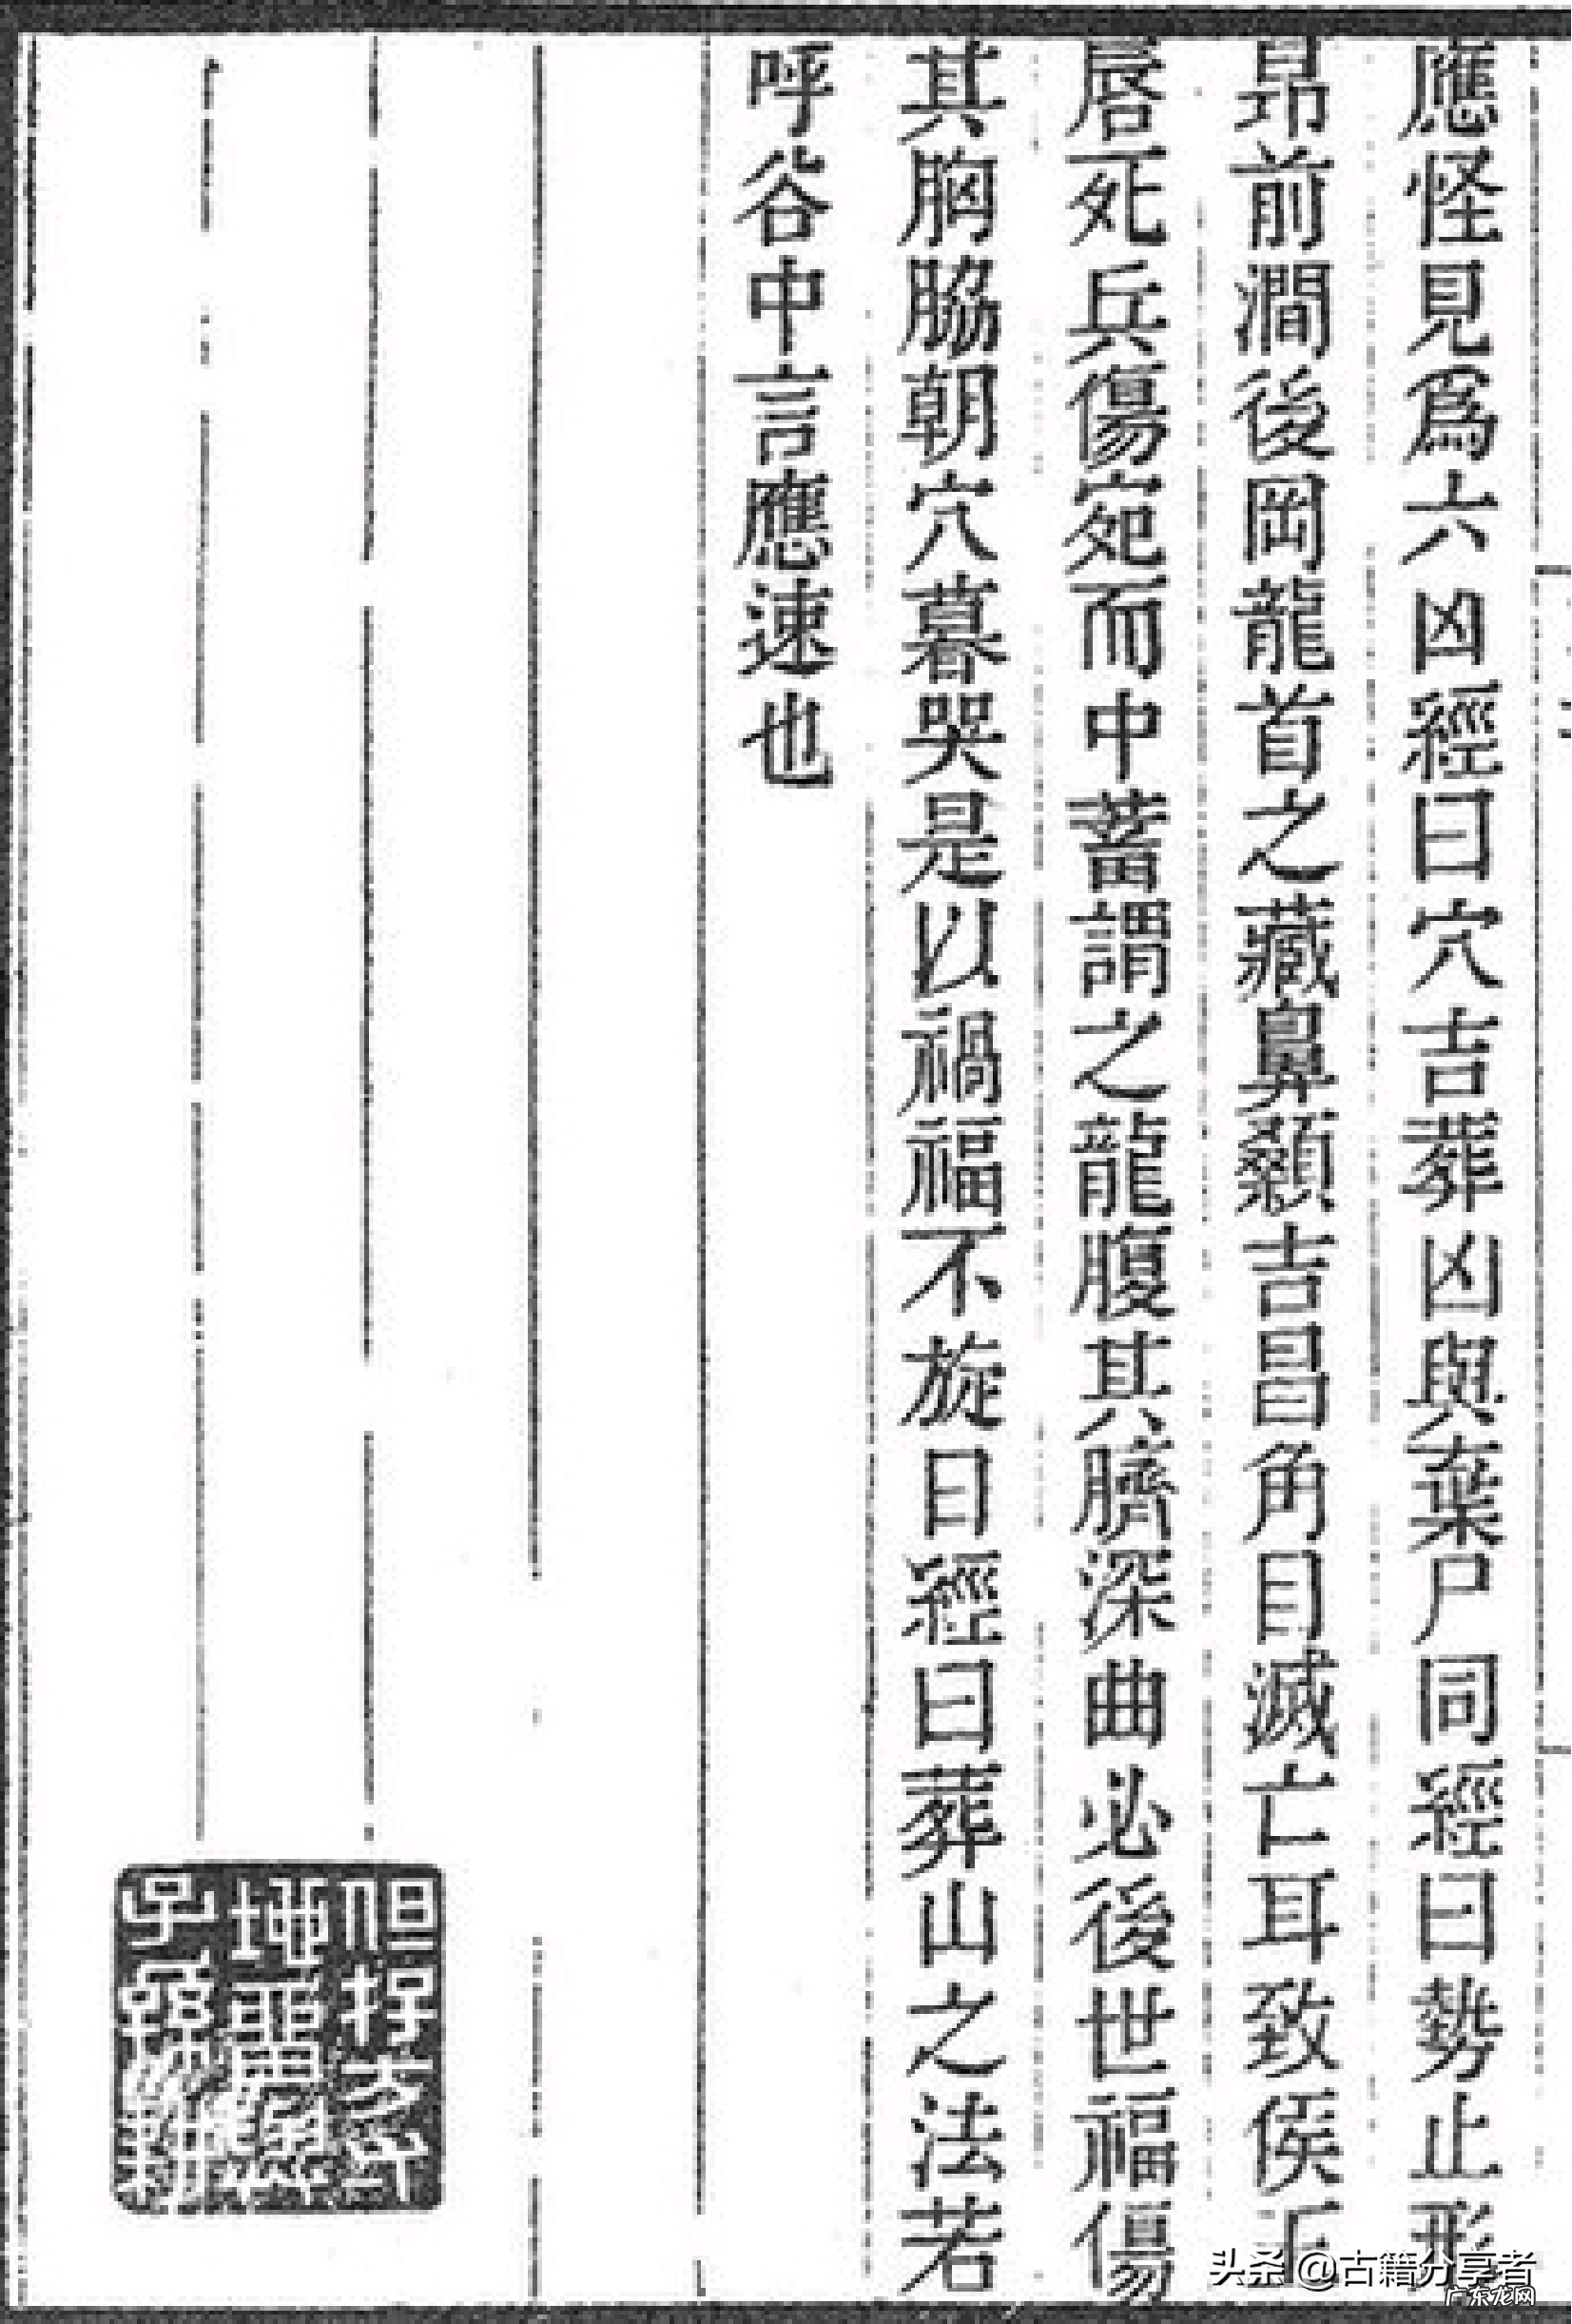 應怪見為六凶經曰穴吉葬凶與棄尸同經曰勢止形
昂前澗後岡龍首之藏鼻顙吉昌角目滅亡耳致侯王
唇死兵傷宛而中蓄謂之龍腹其臍深曲必後世福傷
其胸脇朝穴暮哭是以禍福不旋日經曰葬山之法若
呼谷中言應速也
头条@古籍分享者
广东龙网